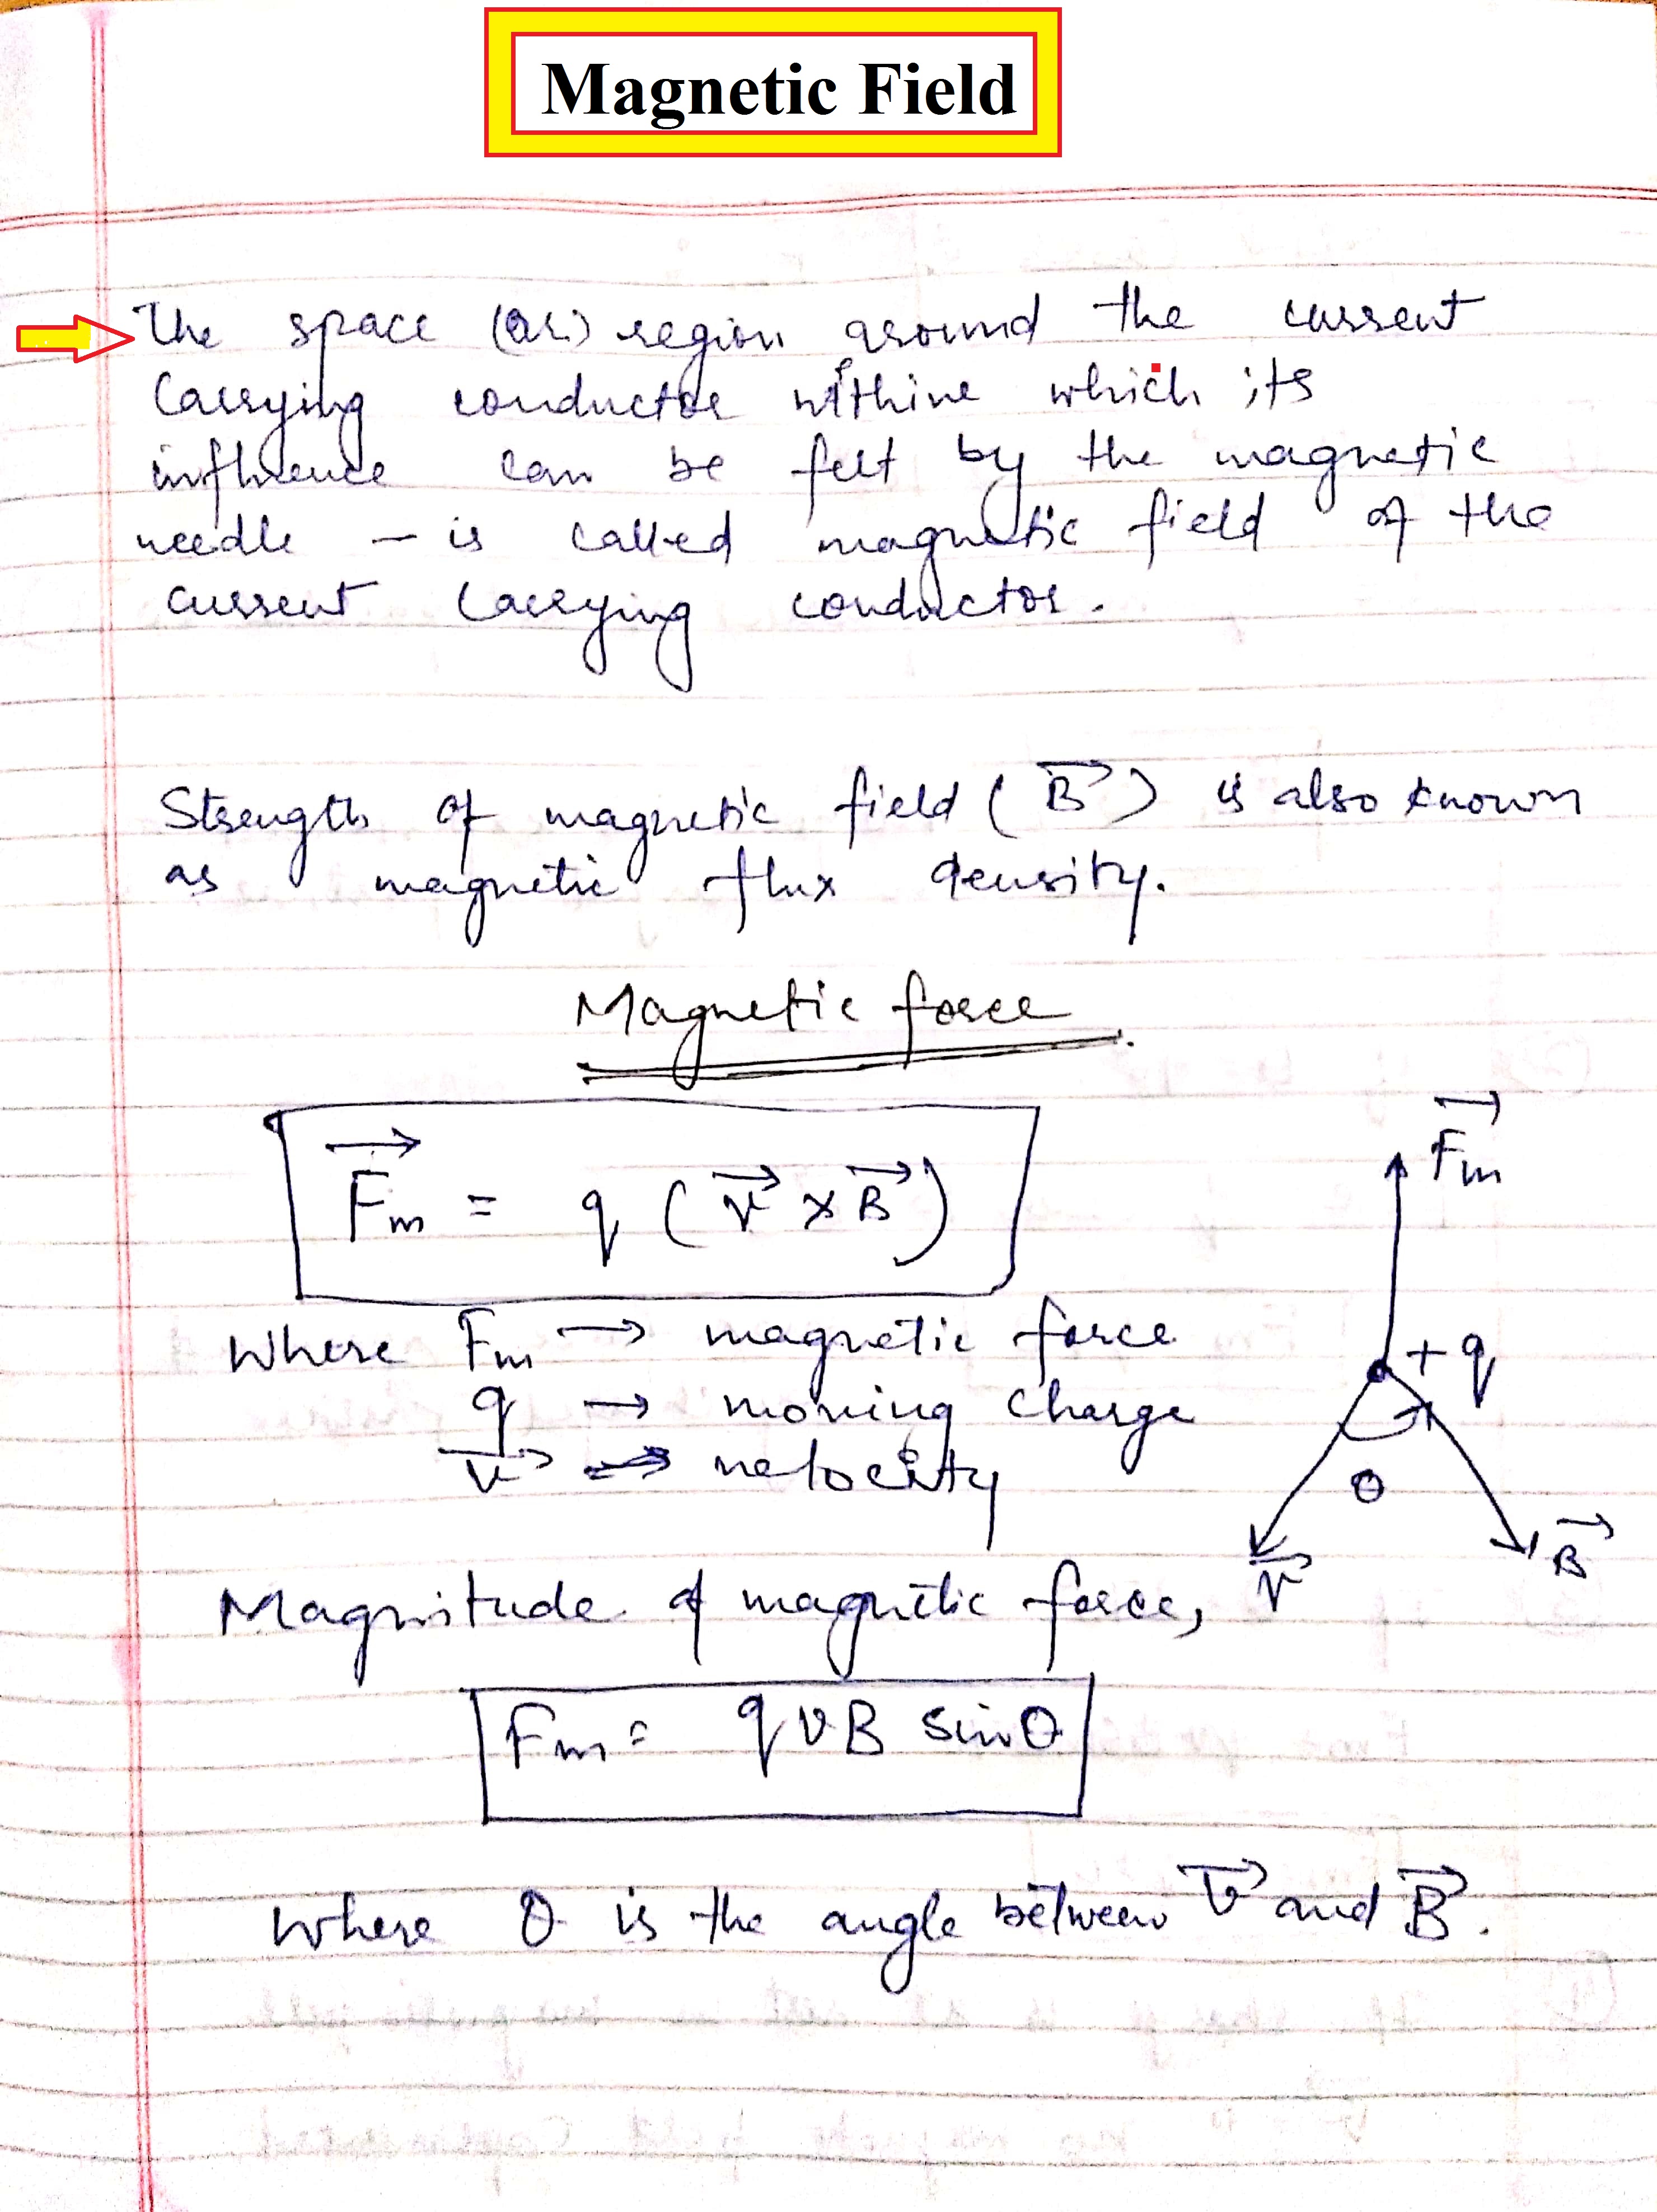 Magnetic Field
The space (or) region around the current
carrying conductor withine which its
influence can be felt by the magnetic
needle – is called magnetic field of the
current carrying conductor.
Strength of magnetic field (B⃗) is also known
as magnetic flux density.
Magnetic force.
F⃗m = q (v⃗ × B⃗)
F⃗m
Where Fm → magnetic force
+q
q → moving charge
v⃗ → velocity
θ
B⃗
v⃗
Magnitude of magnetic force,
Fm = qvB sinθ
where θ is the angle between v⃗ and B⃗.